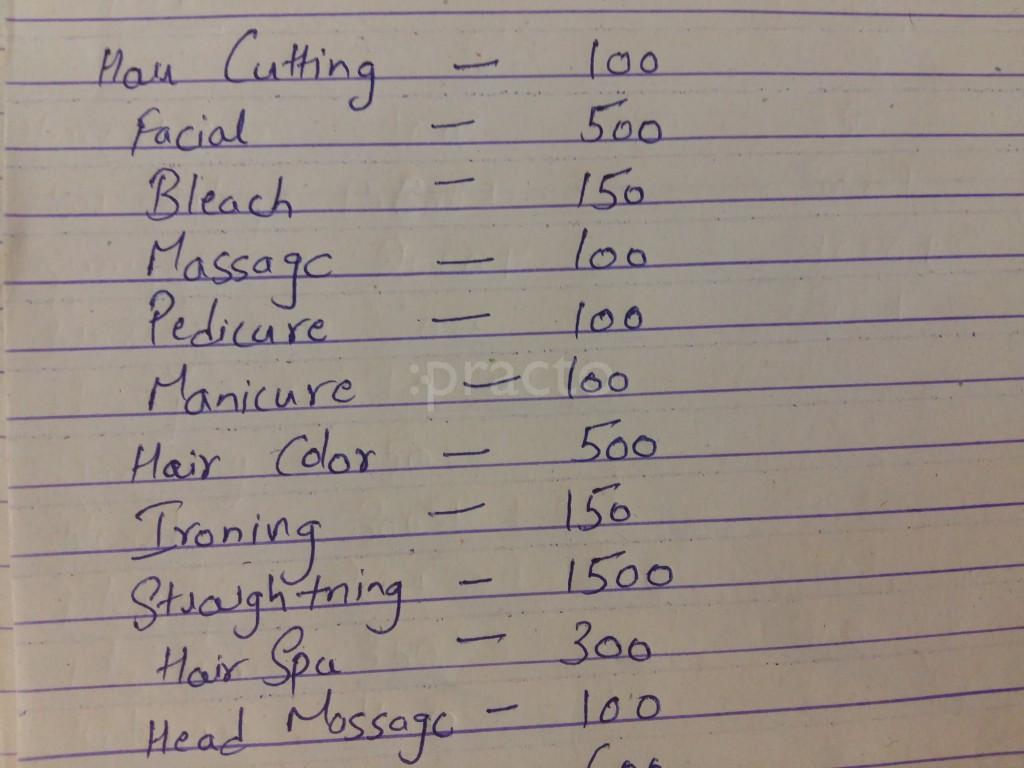 Hair Cutting — 100
Facial — 500
Bleach — 150
Massage — 100
Pedicure — 100
Manicure — 100
:practo
Hair Color — 500
Ironing — 150
Straightning — 1500
Hair Spa — 300
Head Massage — 100